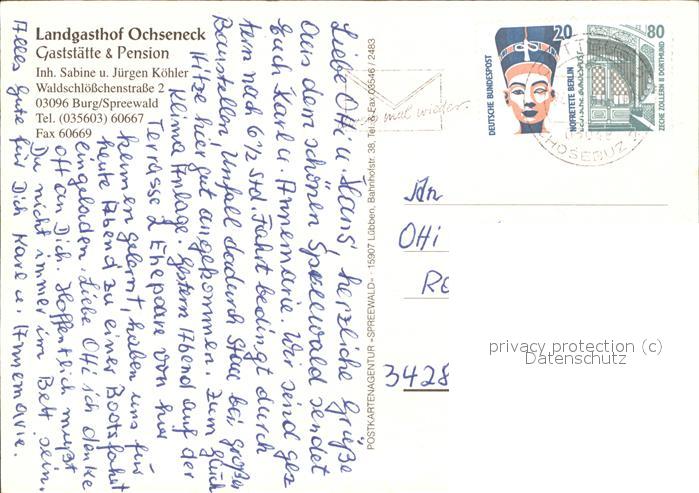 Landgasthof Ochseneck
Gaststätte & Pension
Inh. Sabine u. Jürgen Köhler
Waldschlößchenstraße 2
03096 Burg/Spreewald
Tel. (035603) 60667
Fax 60669
Liebe Otti u. Hans, herzliche Grüße
aus dem schönen Spreewald sendet
Euch Karl u. Annemarie. Wir sind ges
tern nach 6 ½ Std. Fahrt bedingt durch
Baustellen, Unfall dadurch Stau bei großer
Hitze hier gut angekommen. Zum Glück
Klima Anlage. Gestern Abend auf der
Terrasse 2 Ehepaare von hier
kennen gelernt, haben uns für
heute Abend zu einer Bootsfahrt
eingeladen. Liebe Otti ich denke
oft an Dich. Hoffentlich mußt
Du nicht immer im Bett sein.
Alles Gute für Dich Karl u. Annemarie.
POSTKARTENAGENTUR »SPREEWALD« · 15907 Lübben, Bahnhofstr. 38, Tel. & Fax 03546 / 2483
mal wieder
DEUTSCHE BUNDESPOST
20
NOFRETETE BERLIN
80
ZECHE ZOLLERN II DORTMUND
CHOŚEBUZ
An
Otti
3428
privacy protection (c)
Datenschutz